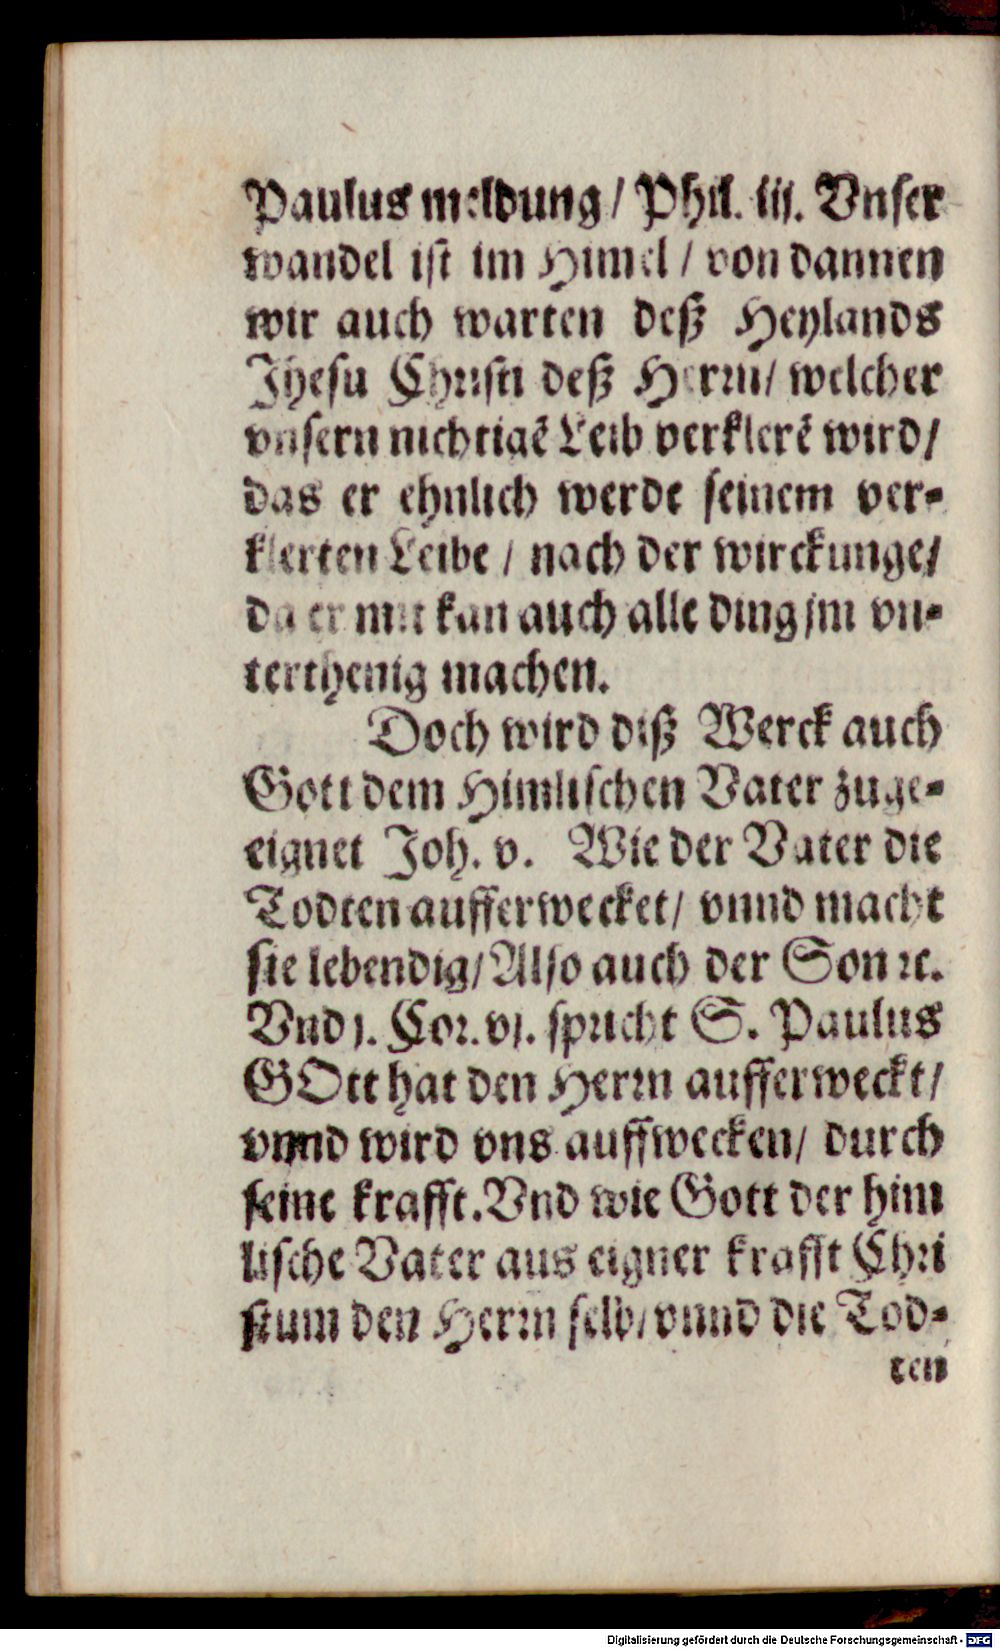 Paulus meldung/ Phil. iij. Vnser
wandel ist im Himel / von dannen
wir auch warten deß Heylands
Jhesu Christi deß Herrn/ welcher
vnsern nichtigẽ Leib verklerẽ wird/
das er ehnlich werde seinem ver-
klerten Leibe / nach der wirckunge/
da er mit kan auch alle ding jm vn-
terthenig machen.
Doch wird diß Werck auch
Gott dem Himlischen Vater zuge-
eignet Joh. v. Wie der Vater die
Todten aufferwecket/ vnnd macht
sie lebendig/ Also auch der Son ꝛc.
Vnd j. Cor. vj. spricht S. Paulus
GOtt hat den Herrn aufferweckt/
vnnd wird vns auffwecken/ durch
seine krafft. Vnd wie Gott der him
lische Vater aus eigner krafft Chri
stum den Herrn selb/ vnnd die Tod-
ten
Digitalisierung gefördert durch die Deutsche Forschungsgemeinschaft - DFG